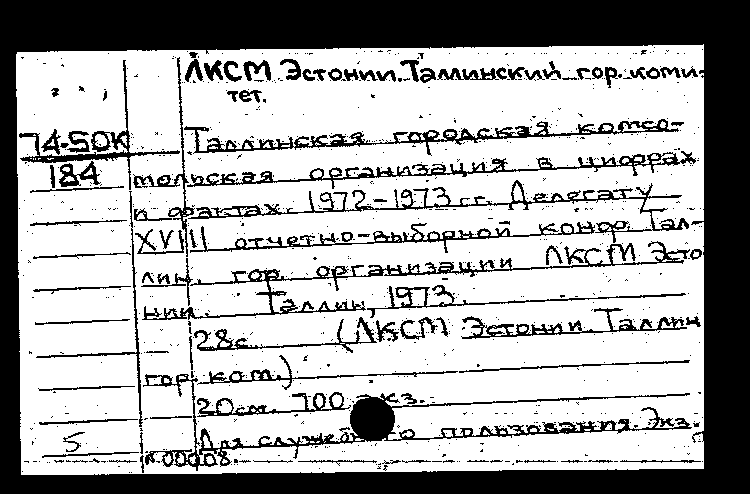 ЛКСМ Эстонии. Таллинский гор. коми-
тет.
74-50К
184
Таллинская городская комсо-
мольская организация в цифрах
и фактах. 1972-1973 гг. Делегату
XVIII отчетно-выборной конф. Тал-
лин. гор. организации ЛКСМ Эсто
нии. Таллин, 1973.
28с. (ЛКСМ Эстонии. Таллин
гор. ком.)
20см. 700 экз.
5 Для служебного пользования. Экз.
№ 00008.